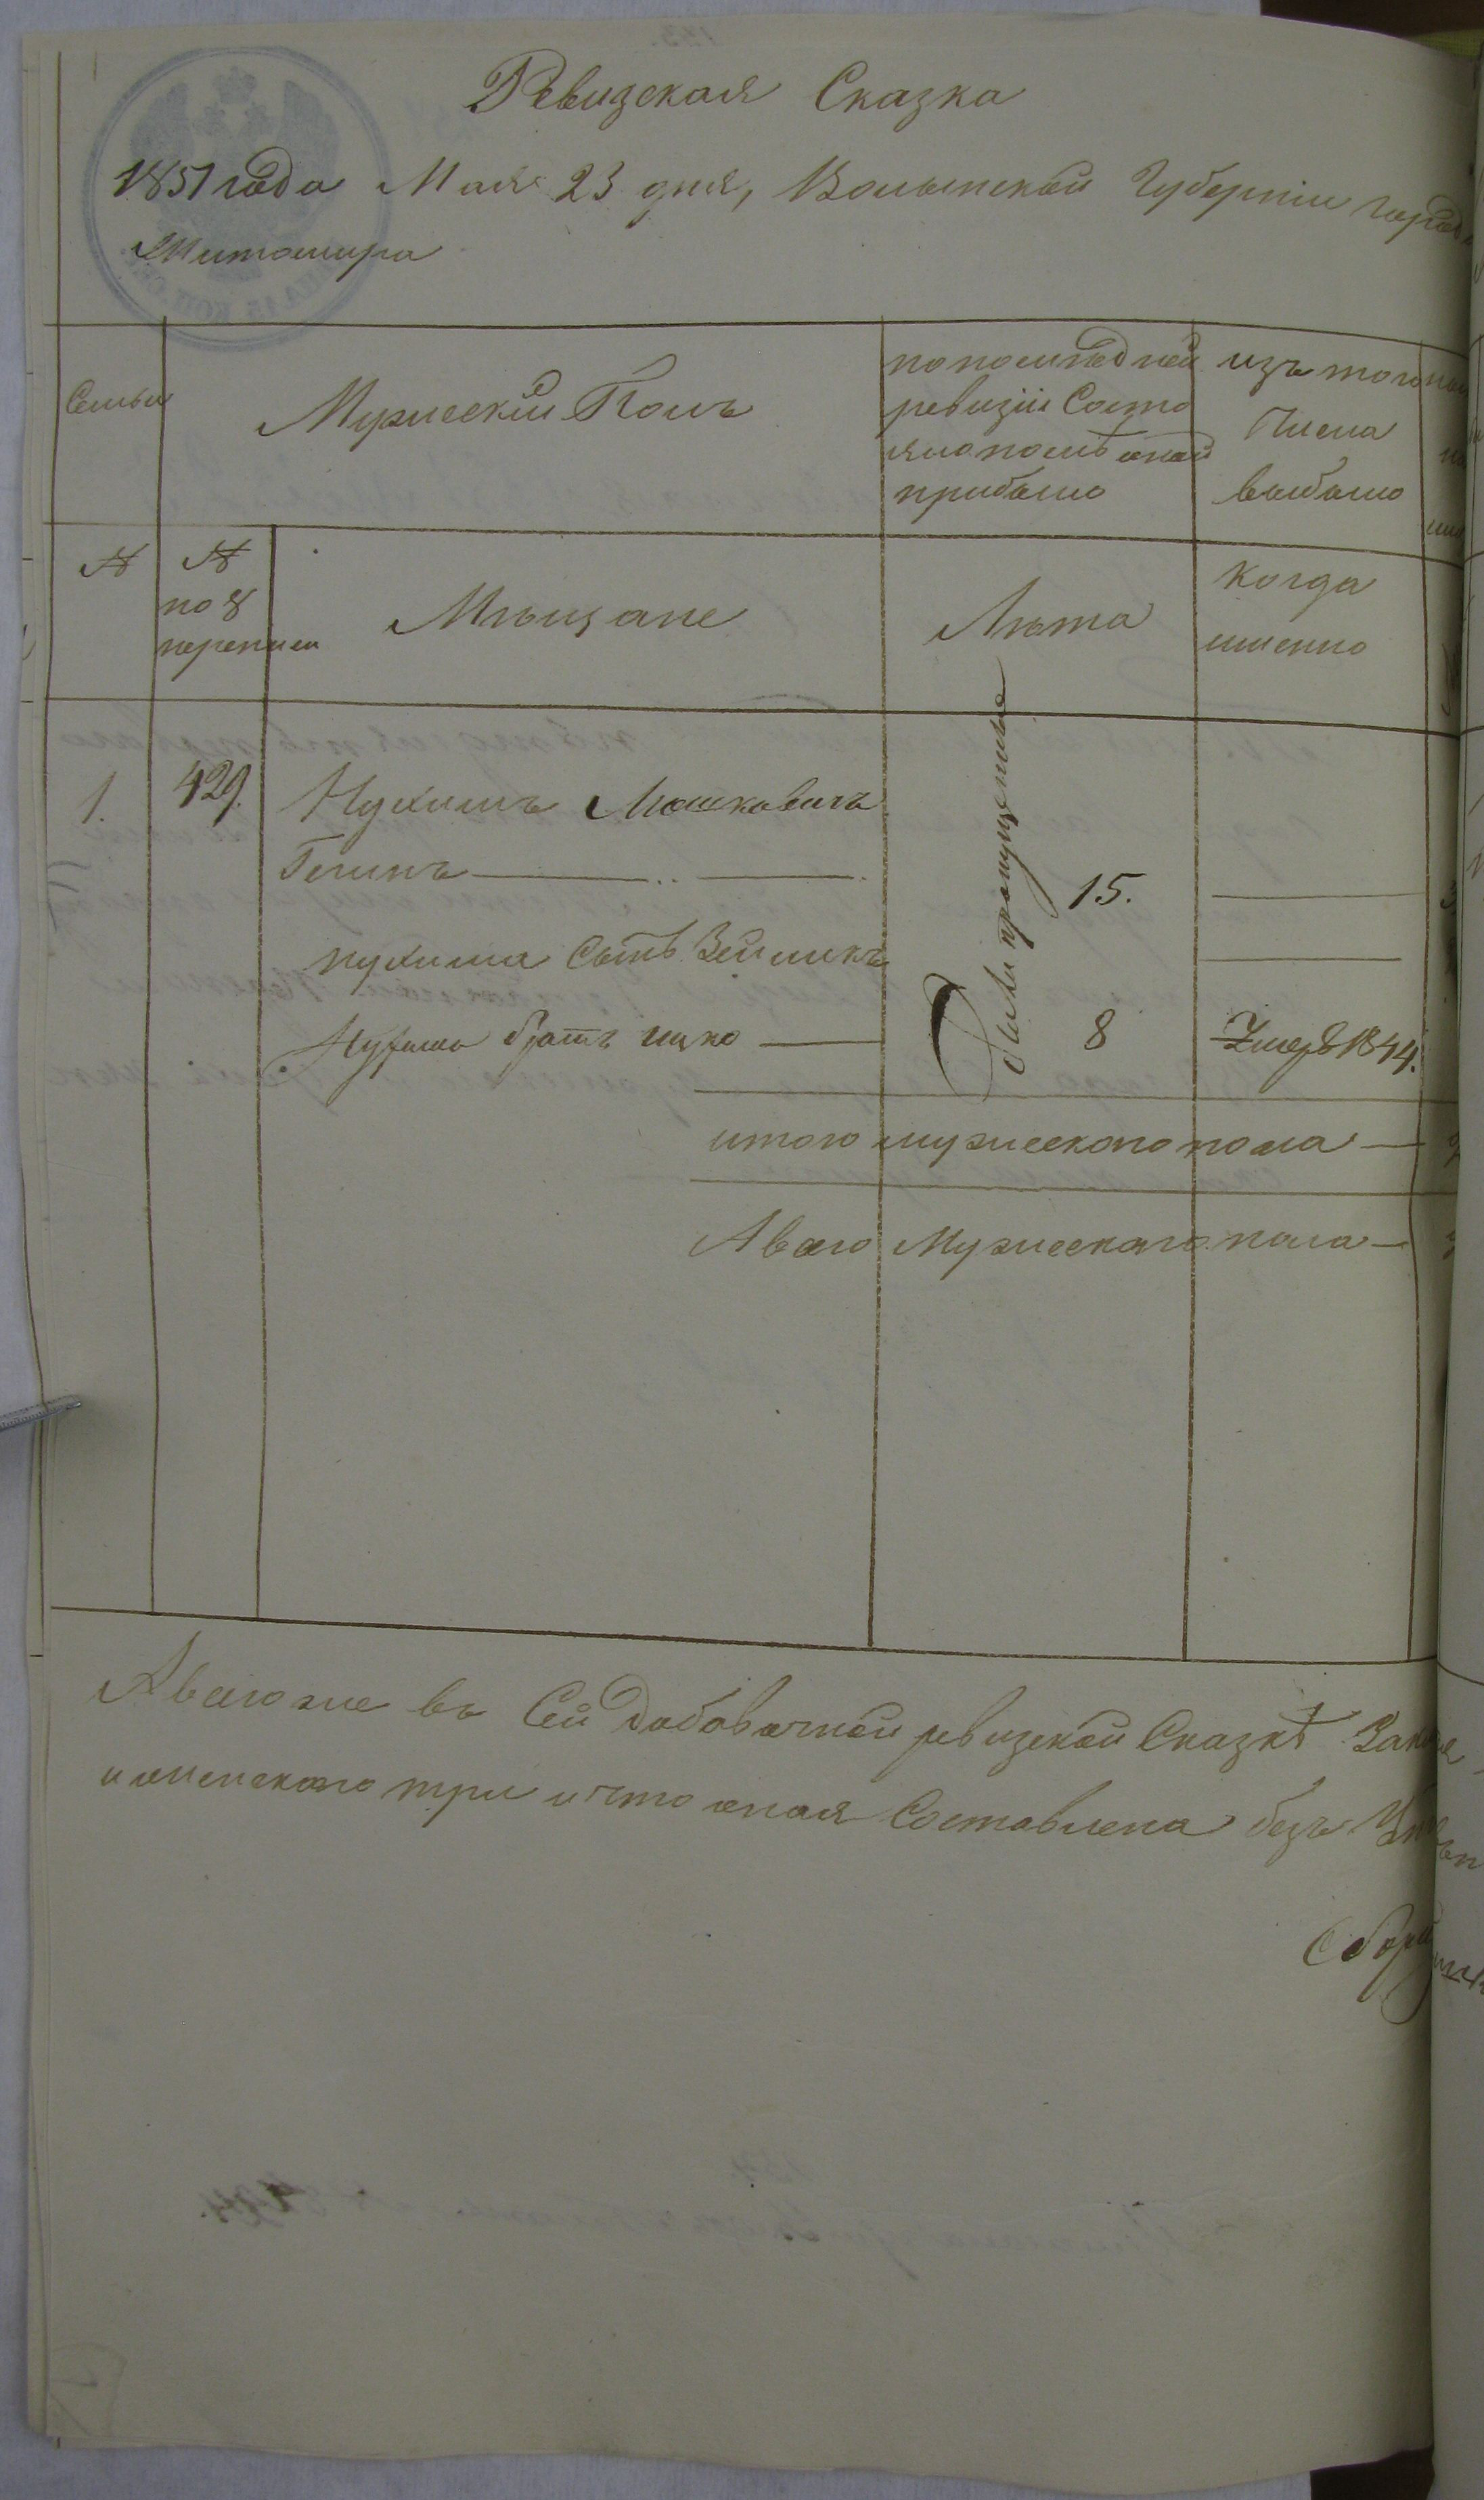 Ревизская Сказка
1851 года Мая 23 дня, Волынской Губернiи город
Житомира
Семьи
Мужескiй Полъ
по последней
ревизiи Состо
яло и после оной
прибыло
изъ того
Числа
выбыло
№
№
по 8
переписи
Мѣщане
Лѣта
Когда
имянно
1.
429.
Нухимъ Мошковичъ
Были пропущенные
15.
нухима Сынъ Зейликъ
Нухима братъ ицко
8
Умеръ 1844.
итого мужескаго пола
А всего Мужескаго пола
А всего же въ Сей добавочной ревизской Сказкѣ
и женскаго три и что оная Составлена безъ